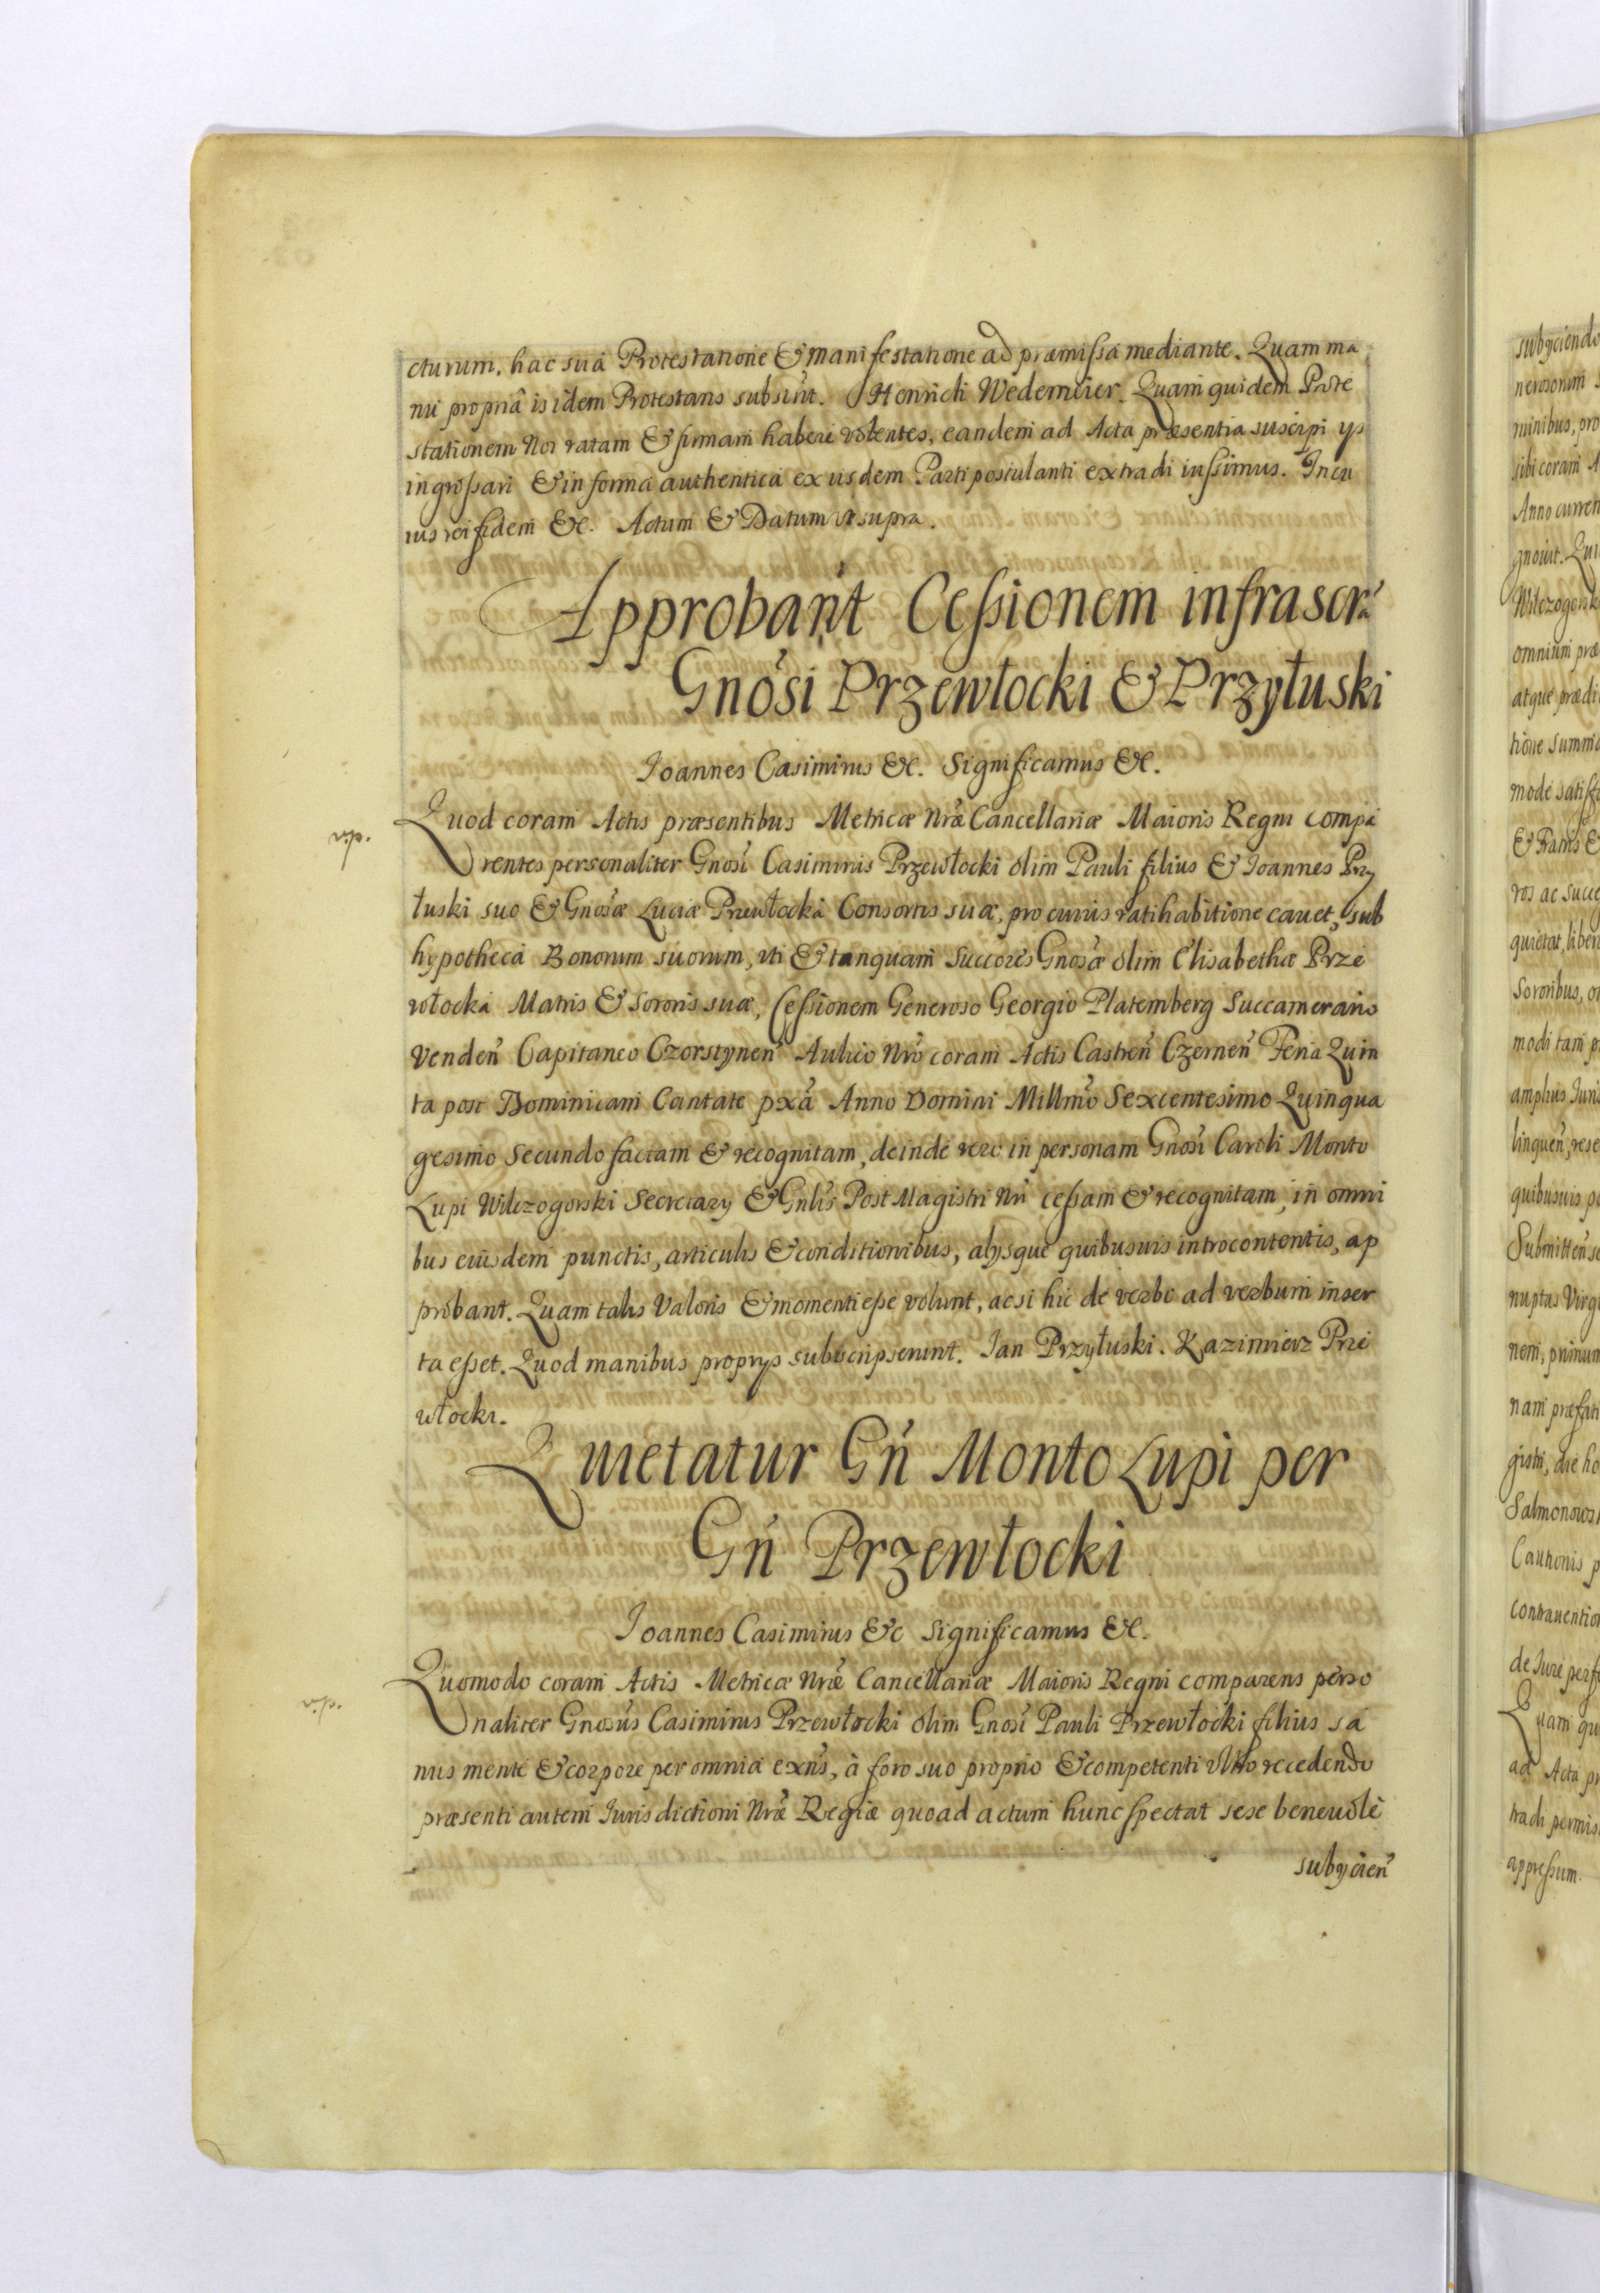 cturum, hac sua Protestatione & manifestatione ad præmissa mediante. Quam ma
nu propriâ isidem Protestans subsint. Henrich Wedemeier. Quam quidem Prote
stationem Nos ratam & firmam habere volentes, eandem ad Acta præsentia suscipi ys
ingrossari & in forma authentica ex iisdem Parti postulanti extradi iussimus. In cu
ius rei fidem &c. Actum & Datum vt supra.
Approbant Cessionem infrascr.
Gnosi Przewłocki & Przyłuski
Ioannes Casimirus &c. Significamus &c.
Quod coram Actis præsentibus Metricæ Nræ Cancellariæ Maioris Regni compa
rentes personaliter Gnosi Casimirus Przewłocki olim Pauli filius & Ioannes Przy
łuski suo & Gnosæ Luciæ Przewłocka Consortis suæ, pro cuius ratihabitione cauet, sub
hypotheca Bonorum suorum, vti & tanquam Succores Gnosæ olim Elisabethæ Prze
włocka Matris & Sororis suæ, Cessionem Generoso Georgio Platemberg Succamerario
Venden Capitaneo Czorstynen Aulico Nro coram Actis Castren Czernen Feria Quin
ta post Dominicam Cantate pxa Anno Domini Millmo Sexcentesimo Quinqua
gesimo Secundo factam & recognitam, deinde vero in personam Gnosi Caroli Monto
Lupi Wilczogorski Secretary & Gnlis Post Magistri Nri cessam & recognitam, in omni
bus eiusdem punctis, articulis & conditionibus, alysque quibusuis introcontentis, ap
probant. Quam talis valoris & momenti esse volunt, ac si hic de verbo ad verbum inser
ta esset. Quod manibus proprys subscripserunt. Ian Przyłuski. Kazimierz Prze
włocki.
Quietatur Gn Monto Lupi per
Gn Przewłocki
Ioannes Casimirus &c Significamus &c.
Quomodo coram Actis Metricæ Nræ Cancellariæ Maioris Regni comparens perso
naliter Gnosus Casimirus Przewłocki olim Gnosi Pauli Przewłocki filius sa
nus mente & corpore per omnia exns, à foro suo proprio & competenti vltro recedendo
præsenti autem Iurisdictioni Nræ Regiæ quoad actum hunc spectat sese beneuole
subycien